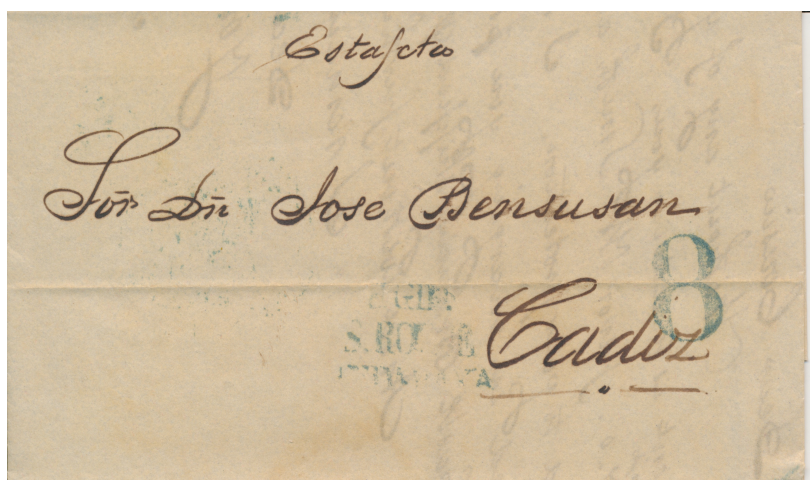 Estafeta
Sōr Dn̄ Jose Bensusan
8
S. ROQUE
Cadiz